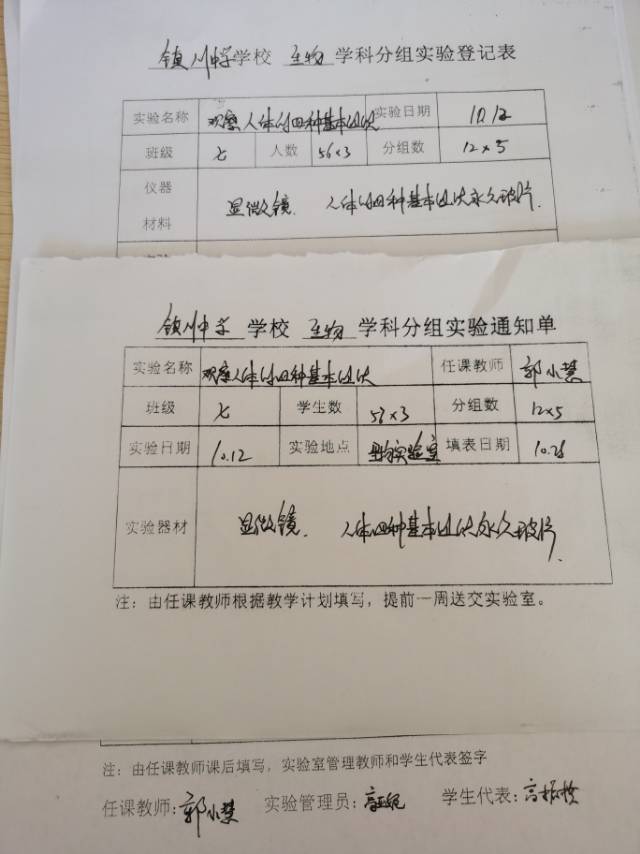 镇川中学学校 生物 学科分组实验登记表
实验名称 观察人体的四种基本组织 实验日期 10.12
班级 七 人数 56×3 分组数 12×5
仪器
材料
显微镜. 人体的四种基本组织永久玻片.
镇川中学 学校 生物 学科分组实验通知单
实验名称 观察人体的四种基本组织 任课教师 郭小慧
班级 七 学生数 53×3 分组数 12×5
实验日期 10.12 实验地点 生物实验室 填表日期
实验器材 显微镜. 人体四种基本组织永久玻片.
注：由任课教师根据教学计划填写，提前一周送交实验室。
注：由任课教师课后填写，实验室管理教师和学生代表签字
任课教师：郭小慧 实验管理员： 学生代表：